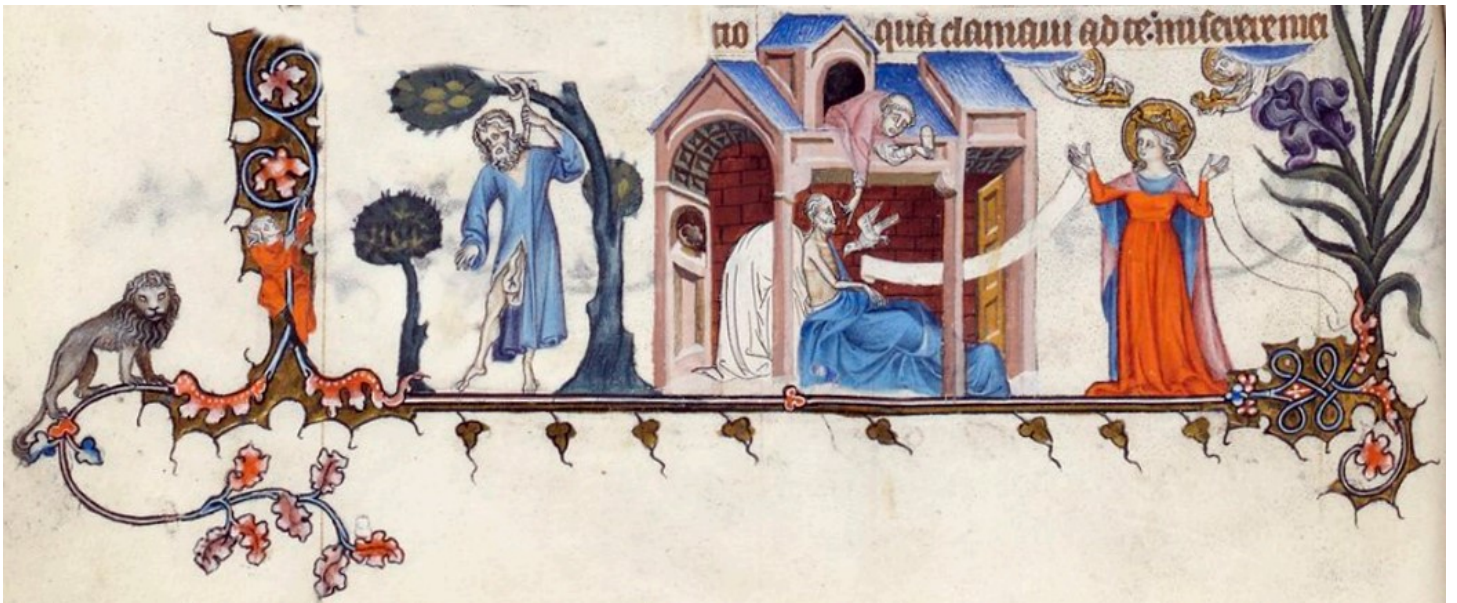 tio quā clamaui ad te: miserere mei